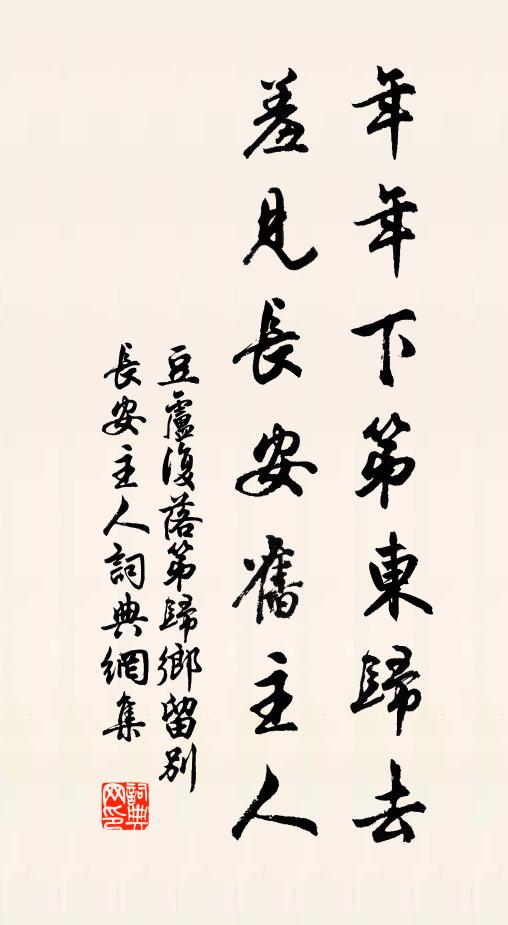 年年下第東歸去
羞見長安舊主人
豆盧復落第歸鄉留別
長安主人詞典網集
詞典网印